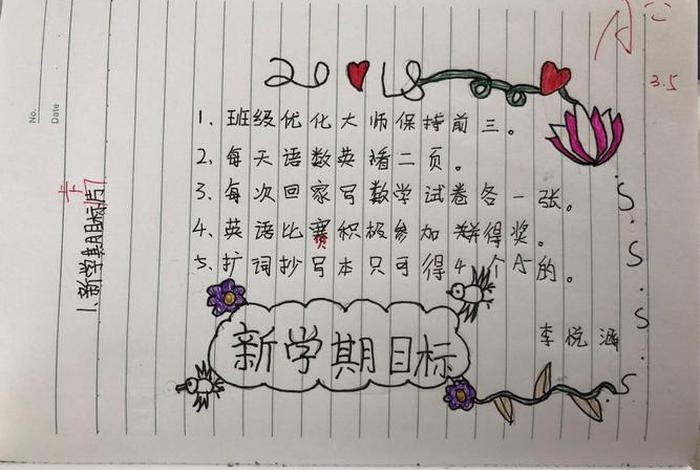 No.
Date
1.新学期目标
2018
1、班级优化大师保持前三。
2、每天语数英看二页。
3、每次回家写数学试卷各一张。
4、英语比赛积极参加获得奖。
5、扩词抄写本只可得4个A的。
新学期目标
李悦涵
3.5
S.S.S.S